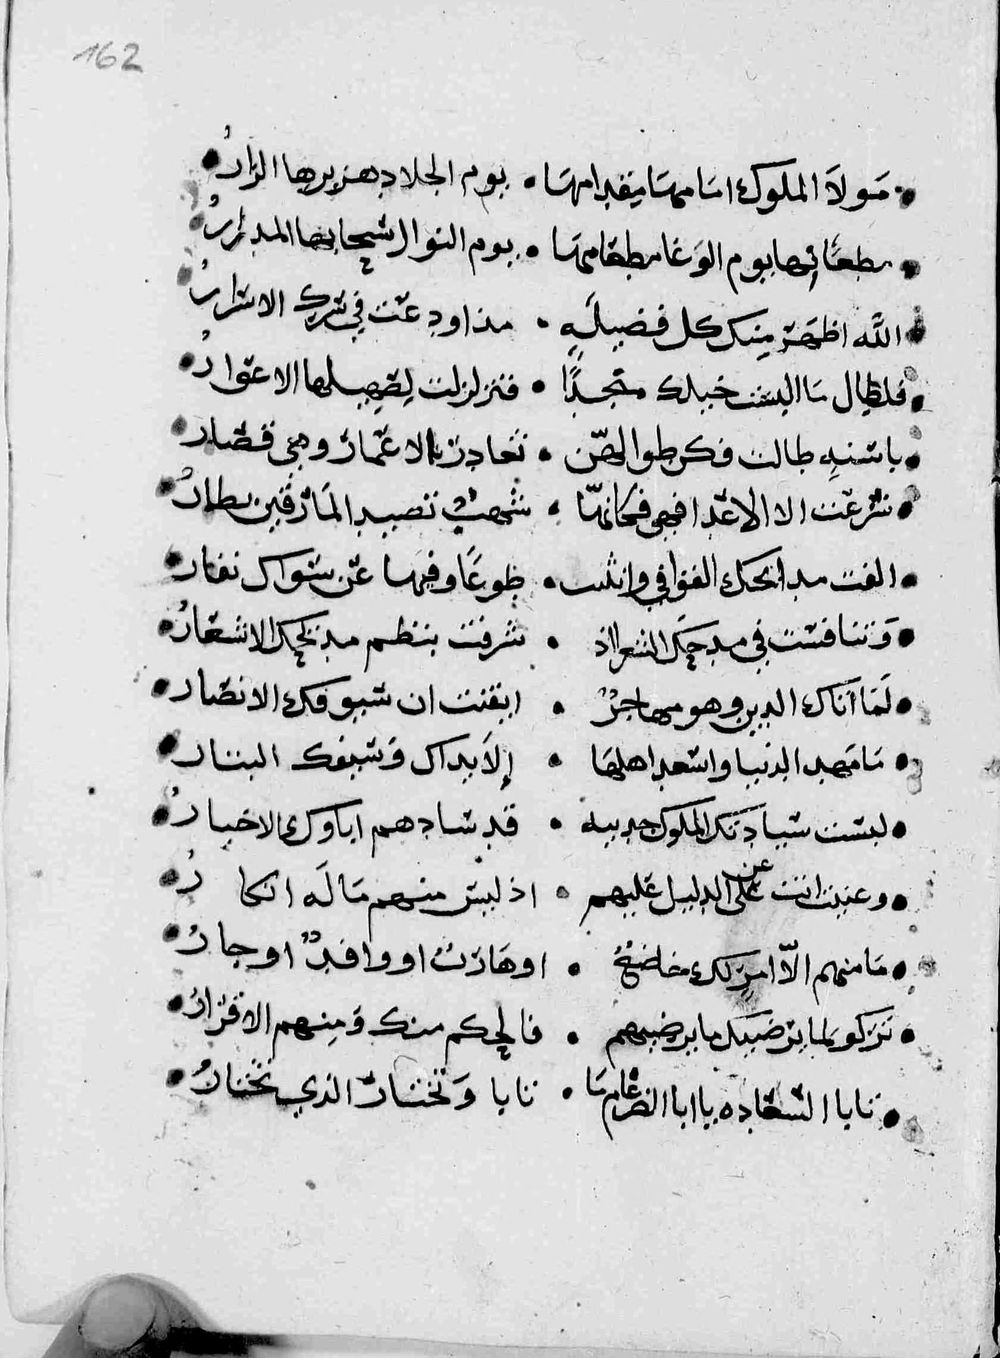 162
مَولاَ الملوك امامها مقدامها • يوم الجلاد هزبرها الزارُ
مطعانها يوم الوغا مطعامها • يوم النوال سحابها المدرارُ
اللَّه اظهَر مِنك كل فضيلَةٍ • مذ اودعت في سرك الاسرارُ
فلطال مَا البست خيلك عتجدًا • فتزلزلت لِصَهِيلها الاغوارُ
باسنةٍ طالت فكم طوا لهن • تعادت الاعمار وهي قصار
شرعت الا الاعدا فهي فكانهّا • شهبٌ تصيد المارقين
الفت مدائحك القوافي وانثنت • طوعًا وفيها عن سواك نفار
وَتنافست في مدحِكَ الشعرا اذ • شرفت بنظم مديحك الاشعارُ
لَما اتاك الدين وهو مهاجرٌ • ايقنت ان سيوفك الانصار
مَا مهد الدنيا واسعد اهلهَا • إلاَ يداك وَسيفك البتار
لبست سيادتك الملوك جديده • قد سادهم اباوك الاخيارُ
وعنيت انت عن على الدليل عليهم • اذ ليس منهم مَا لَه انكارُ
مَا منهم الاّ امرٍ لك خاضعٌ • اوهَاربٌ او وافدٌ او جارُ
تزكو لما يرضيك ما يرضيهم • فالحكم منك وَمِنهم الاقرارُ
تابا السعاده يا ابا الضرغام مَا • تابا وَتختار الذي تختارُ